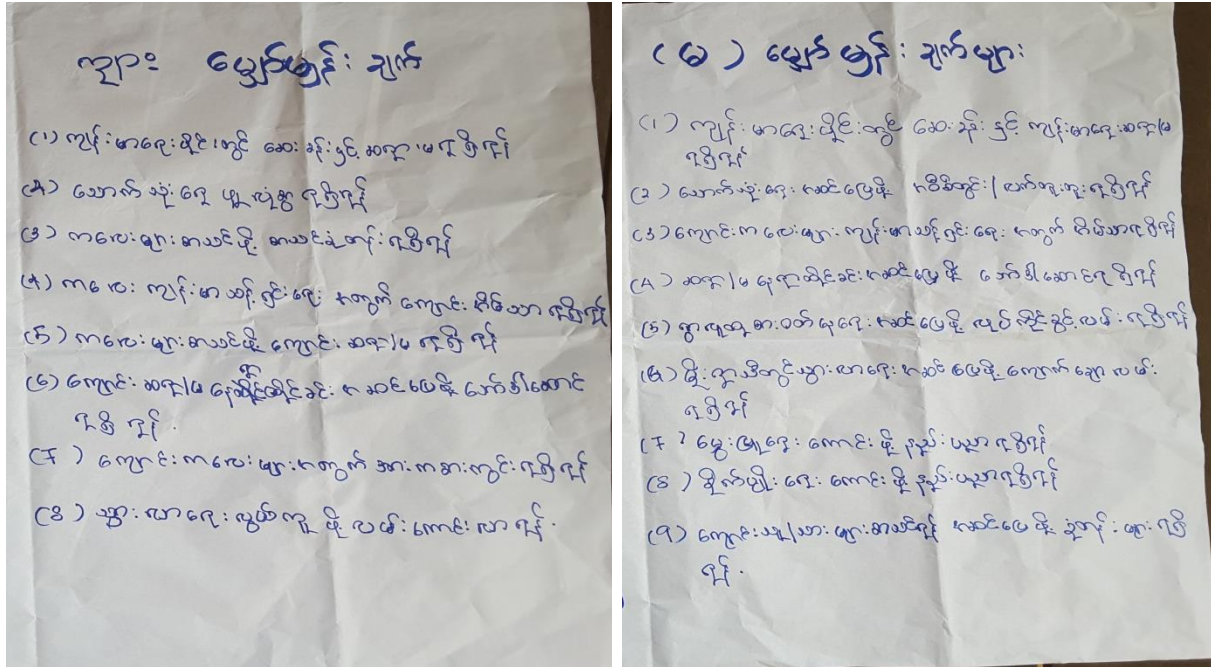 ကျား မျှော်မှန်း ချက်
(၁) ကျန်းမာရေးပိုင်းတွင် ဆေးခန်းနှင့် ဆရာ၊မ ရရှိရန်
(၂) သောက်သုံးရေ ရရှိရန်
(၃) ကလေးများစာသင်ဖို့ စာသင်ခုံတန်းရရှိရန်
(၄) ကလေး ကျန်းမာသန့်ရှင်းရေး အတွက် ကျောင်းအိမ်သာ ရရှိရန်
(၅) ကလေးများစာသင်ဖို့ ကျောင်းဆရာ/မ ရရှိရန်
(၆) ကျောင်းဆရာ/မ နေထိုင်ခင်း အဆင်ပြေဖို့ ဘော်ဒါဆောင်
ရရှိရန်.
(၇) ကျောင်းကလေးများအတွက် အားကစားကွင်းရရှိရန်
(၈) သွားလာရေးလွယ်ကူဖို့ လမ်းကောင်းလာရန်.
(မ) မျှော်မှန်းချက်များ
(၁) ကျန်းမာရေးပိုင်းတွင် ဆေးခန်းနှင့် ကျန်းမာရေးဆရာ/မ
ရရှိရန်
(2) သောက်သုံးရေးအဆင်ပြေဖို့ အဝီစိတွင်း/ ရရှိရန်
(၃) ကျောင်းကလေးများ ကျန်းမာသန့်ရှင်းရေး အတွက် အိမ်သာရရှိရန်
(၄) ဆရာ/မ နေရာထိုင်ခင်းအဆင်ပြေဖို့ ဘော်ဒါဆောင်ရရှိရန်
(၅) ရွာလူထု စားဝတ်နေရေးအဆင်ပြေဖို့ လုပ်ကိုင်ခွင့်လမ်းရရှိရန်
(၆) မြို့ရွာသို့တွင်သွားလာရေးအဆင်ပြေဖို့ ကျောက်ချောလမ်း
ရရှိရန်
(၇) မွေးမြူရေးကောင်းဖို့ နည်းပညာရရှိရန်
(၈) စိုက်ပျိုးရေးကောင်းဖို့ နည်းပညာရရှိရန်
(၉) ကျောင်းသူ/သားများစာသင်ရန် အဆင်ပြေဖို့ ခုံတန်းများရရှိ
ရန်.